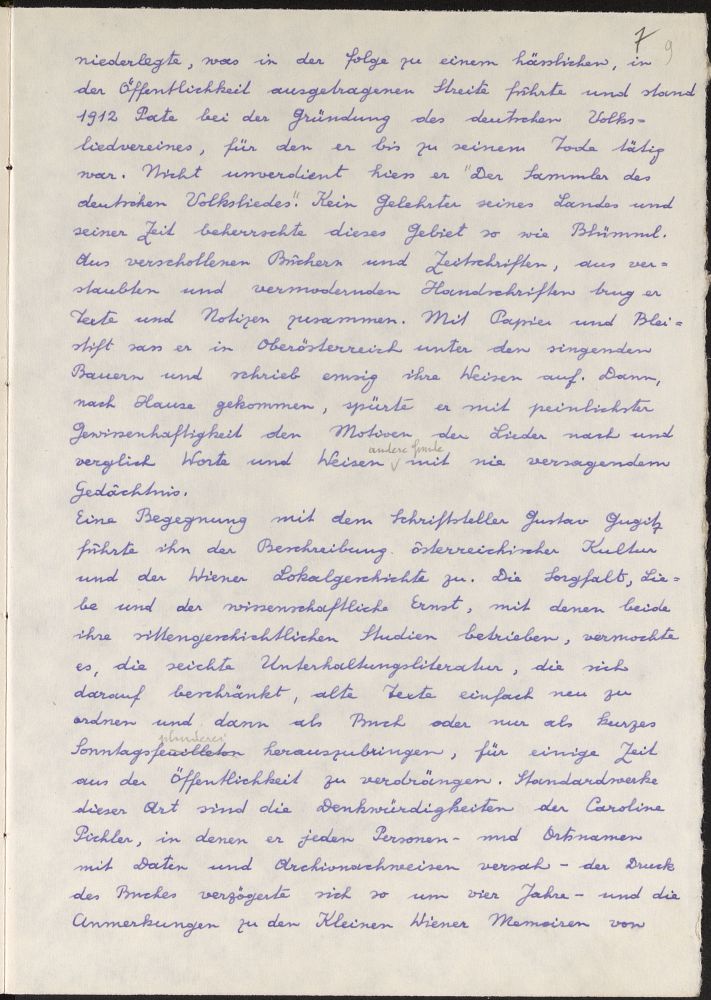 7 9
niederlegte, was in der Folge zu einem hässlichen, in
der Öffentlichkeit ausgetragenen Streite führte und stand
1912 Pate bei der Gründung des deutschen Volks=
liedvereines, für den er bis zu seinem Tode tätig
war. Nicht unverdient hiess er "Der Sammler des
deutschen Volksliedes". Kein Gelehrter seines Landes und
seiner Zeit beherrschte dieses Gebiet so wie Blümml.
Aus verschollenen Büchern und Zeitschriften, aus ver=
staubten und vermodernden Handschriften trug er
Texte und Notizen zusammen. Mit Papier und Blei=
stift sass er in Oberösterreich unter den singenden
Bauern und schrieb emsig ihre Weisen auf. Dann,
nach Hause gekommen, spürte er mit peinlichster
Gewissenhaftigkeit den Motiven der Lieder nach und
verglich Worte und Weisen mit nie versagendem
Gedächtnis.
Eine Begegnung mit dem Schriftsteller Gustav Gugitz
führte ihn der Beschreibung österreichischer Kultur
und der Wiener Lokalgeschichte zu. Die Sorgfalt, Lie=
be und der wissenschaftliche Ernst, mit denen beide
ihre sittengeschichtlichen Studien betrieben, vermochte
es, die seichte Unterhaltungsliteratur, die sich
darauf beschränkt, alte Texte einfach neu zu
ordnen und dann als Buch oder nur als kurzes
plauderei
Sonntagsfeuilleton herauszubringen, für einige Zeit
aus der Öffentlichkeit zu verdrängen. Standardwerke
dieser Art sind die Denkwürdigkeiten der Caroline
Pichler, in denen er jeden Personen- und Ortsnamen
mit Daten und Archivnachweisen versah - der Druck
des Buches verzögerte sich so um vier Jahre - und die
Anmerkungen zu den Kleinen Wiener Memoiren von